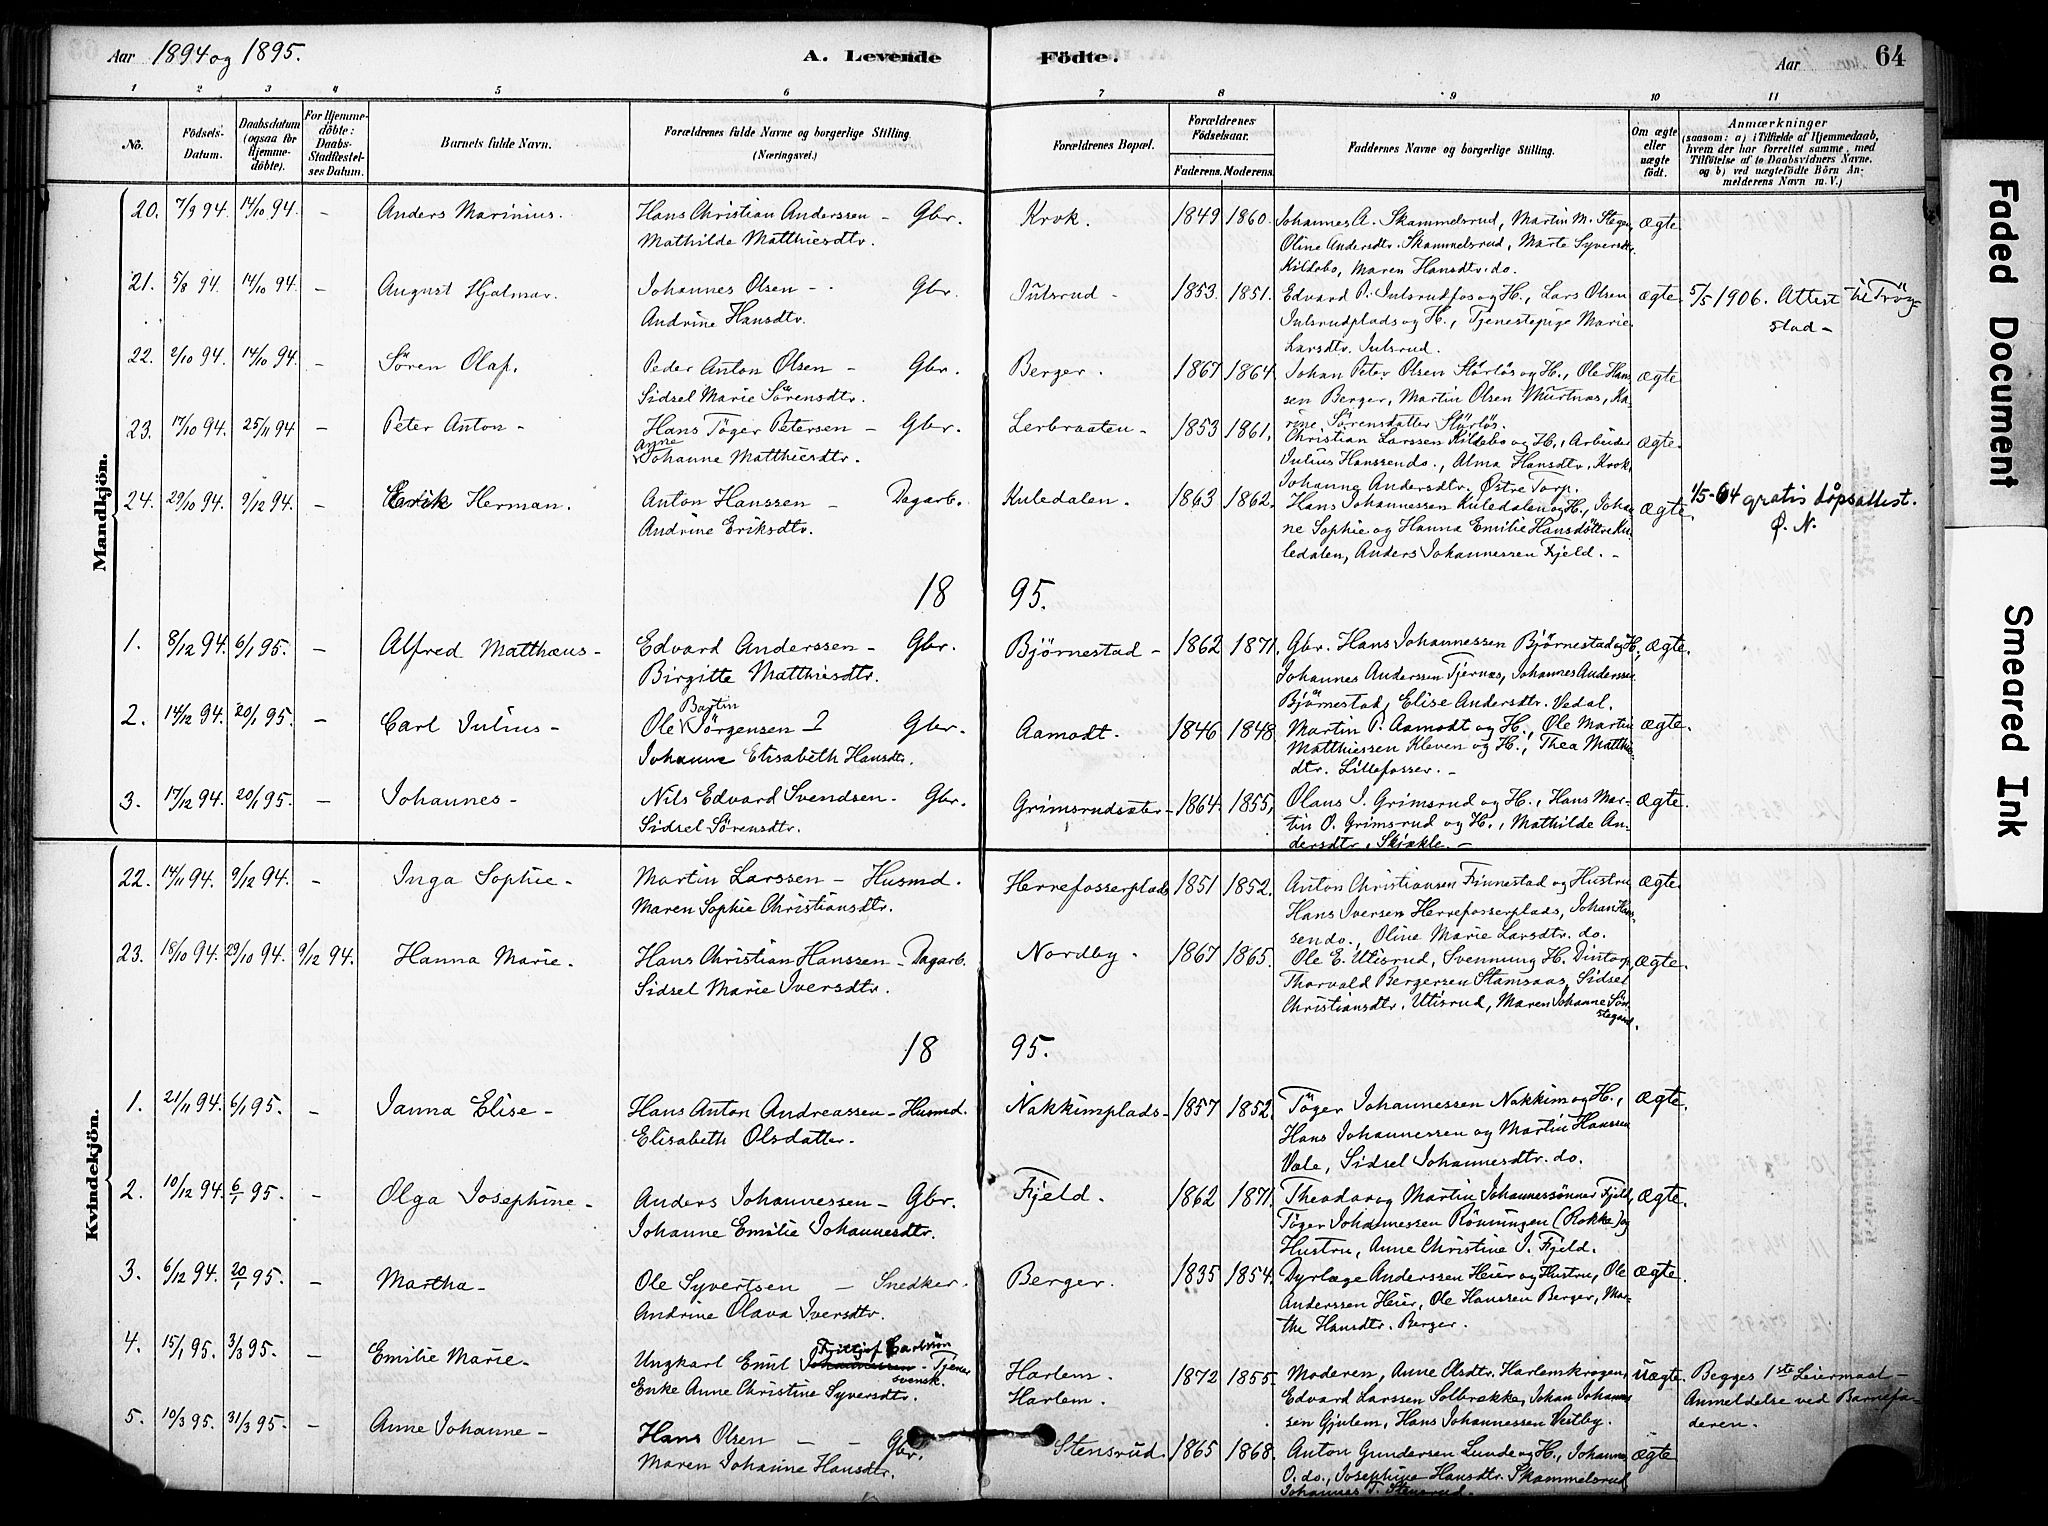 Aar 1894 og 1895.
A. Levende Födte.
Aar
64
1 2 3 4 5 6 7 8 9 10 11
No.
Födsels-Datum.
Daabsdatum (ogsaa för Hjemme-döbte).
For Hjemme-döbte: Daabs-Stadfæstel-ses Datum.
Barnets fulde Navn.
Forældrenes fulde Navne og borgerlige Stilling. (Næringsvei.)
Forældrenes Bopæl.
Forældrenes Födselsaar.
Faderens. Moderens.
Faddernes Navne og borgerlige Stilling.
Om ægte eller uægte födt.
Anmærkninger
(saasom: a) i Tilfælde af Hjemmedaab,
hvem der har forrettet samme, med
Tilföielse af to Daabsvidners Navne,
og b) ved uægtefödte Börn An-
melderens Navn m. V.)
Mandkjön.
20. 7/9 94. 14/10 94. – Anders Marinius. Hans Christian Anderssen – Gbr. Krok. 1849 1860. Johannes A. Skammelsrud, Martin M. Stegen, ægte
Mathilde Matthiesdtr. Oline Andersdtr. Skammelsrud, Marte Syversdtr.
Kildebo, Maren Hansdtr. do.
21. 5/8 94. 14/10 94. – August Hjalmar. Johannes Olsen – Gbr. Julsrud – 1853. 1851. Edvard P. Julsrudfos og H., Lars Olsen ægte. 5/5 1906. Attest til Trög-
Andrine Hansdtr. Julsrudplads og H., Tjenestepige Marie stad –
Larsdtr. Julsrud.
22. 2/10 94. 14/10 94. – Sören Olaf. Peder Anton Olsen – Gbr. Berger. 1867 1864. Johan Peter Olsen Störlös og H., Ole Hans- ægte
Sidsel Marie Sörensdtr. sen Berger, Martin Olsen Murtnæs, Ka-
rine Sörensdatter Störlös.
23. 17/10 94. 25/11 94 – Peter Anton – Hans Töger Petersen – Gbr. Lerbraaten – 1853 1861. Christian Larssen Kildebo og H., Arbeider ægte.
Anne
Johanne Matthiesdtr. Julius Hanssen do., Alma Hansdtr. Krok,
Johanne Andersdtr. Østre Torp.
24. 29/10 94. 9/12 94. – Erik Herman. Anton Hanssen – Dagarb. Kuledalen. 1863 1862. Hans Johannessen Kuledalen og H., Johan- ægte. 1/5-64 gratis dåpsattest.
Andrine Eriksdtr. ne Sophie og Hanna Emilie Hansdöttre Ku- Ø. N.
ledalen, Anders Johannessen Fjeld. –
18 95.
1. 8/12 94. 6/1 95. – Alfred Matthæus – Edvard Anderssen – Gbr. Bjørnestad – 1862 1871. Gbr. Hans Johannessen Bjørnestad og H., ægte.
Birgitte Matthiesdtr. Johannes Anderssen Tjernæs, Johannes Anderssen
Bjørnestad, Elise Andersdtr. Vedal.
2. 14/12 94. 20/1 95. – Carl Julius – Ole Bartin Jörgensen – Gbr. Aamodt. 1846 1848 Martin P. Aamodt og H., Ole Martin ægte.
Johanne Elisabeth Hansdtr. Matthiessen Kleven og H., Thea Matthis-
dtr. Lillefosser. –
3. 17/12 94. 20/1 95. – Johannes – Nils Edvard Svendsen. – Gbr. Grimsrudsæter – 1864. 1855. Olaus J. Grimsrud og H., Hans Mar- ægte.
Sidsel Sörensdtr. tin O. Grimsrud og H., Mathilde An-
dersdtr. Skjækle. –
Kvindekjön.
22. 14/11 94. 9/12 94. – Inga Sophie – Martin Larssen – Husmd. Herrefosserplads 1851 1852. Anton Christiansen Finnestad og Hustru ægte
Maren Sophie Christiansdtr. Hans Iversen Herrefosserplads, Johan Hans-
sen do., Oline Marie Larsdtr. do.
23. 18/10 94. 29/10 94. 9/12 94. Hanna Marie. Hans Christian Hanssen – Dagarb. Nordby. 1867 1865. Ole E. Utisrud, Svennung H. Dintorp, ægte.
Sidsel Marie Iversdtr. Thorvald Bergersen Stamsaas, Sidsel
Christiansdtr. Utisrud, Maren Johanne Sör-
stegard.
18 95.
1. 21/11 94. 6/1 95. – Janna Elise – Hans Anton Andreassen – Husmd. Nakkimplads – 1857 1852. Töger Johannessen Nakkim og H., ægte.
Elisabeth Olsdatter. Hans Johannessen og Martin Hanssen
Vale, Sidsel Johannesdtr. do.
2. 10/12 94. 6/1 95. – Olga Josephine – Anders Johannessen – Gbr. Fjeld. 1862 1871. Theodor og Martin Johannessönner Fjeld, ægte.
Johanne Emilie Johannesdtr. Töger Johannessen Rönningen (Rokke) og
Hustru, Anne Christine J. Fjeld.
3. 6/12 94. 20/1 95. – Martha – Ole Syvertsen – Snedker. Berger. 1835 1854. Dyrlæge Anderssen Heier og Hustru, Ole ægte.
Andrine Olava Iversdtr. Anderssen Heier, Ole Hanssen Berger, Mar-
the Hansdtr. Berger.
4. 15/1 95. 3/3 95. – Emilie Marie – Ungkarl Emil Johannessen – Tjener Harlem. 1872 1855. Moderen, Anne Olsdtr. Harlemskrogen, uægte. Begges 1ste Leiermaal –
svensk.
Enke Anne Christine Syversdtr. Harlem. Edvard Larssen Solbrække, Johan Johannes- Anmeldelse ved Barnefa-
sen Gjulem, Hans Johannessen Vestby. deren.
5. 10/3 95. 31/3 95. – Anne Johanne – Hans Olsen – – Gbr. Stensrud. 1865 1868. Anton Gundersen Lunde og H., Johannes ægte
Maren Johanne Hansdtr. O. do., Josephine Hansdtr. Skammelsrud
Johannes T. Stensrud.
Faded Document
Smeared Ink